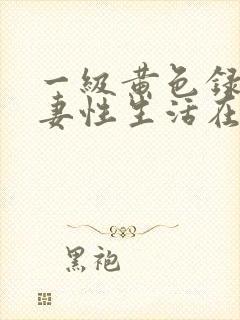 一級黄色録
妻性生活在
黑袍